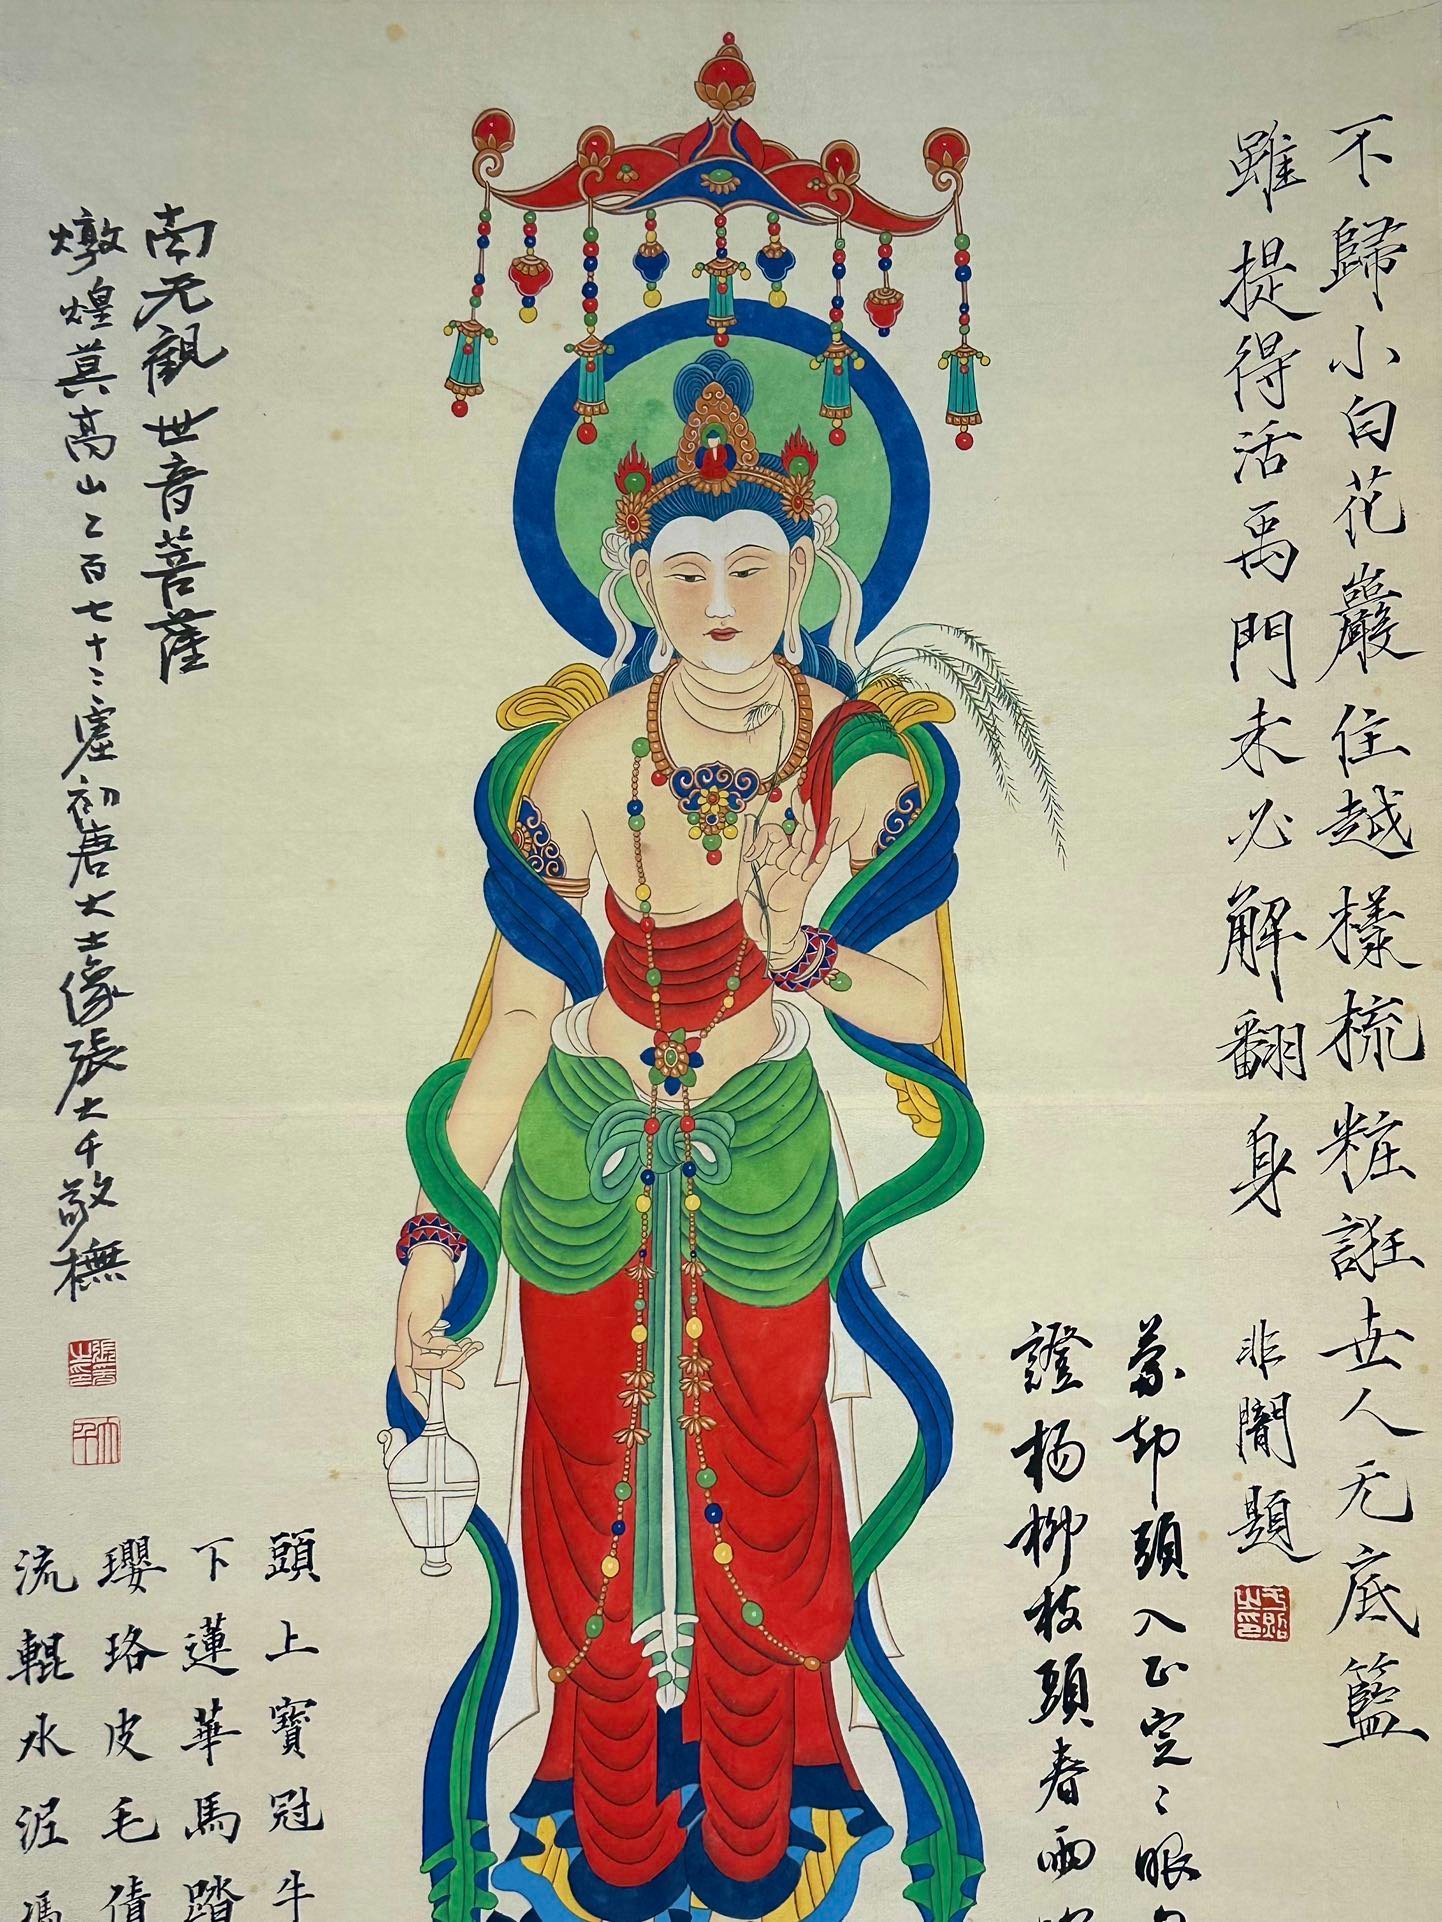 不歸小白花巖住越樣梳粧誑世人无底籃
雖提得活禹門未必解翻身
非闇題
蒙却頭入正定〻眼
證楊柳枝頭春雨
南无觀世音菩薩
燉煌莫高山乙百七十二窟初唐大士像張大千敬橅
張爰之印
大千
頭上寶冠牛
下蓮華馬踏
瓔珞皮毛債
流輥水泥